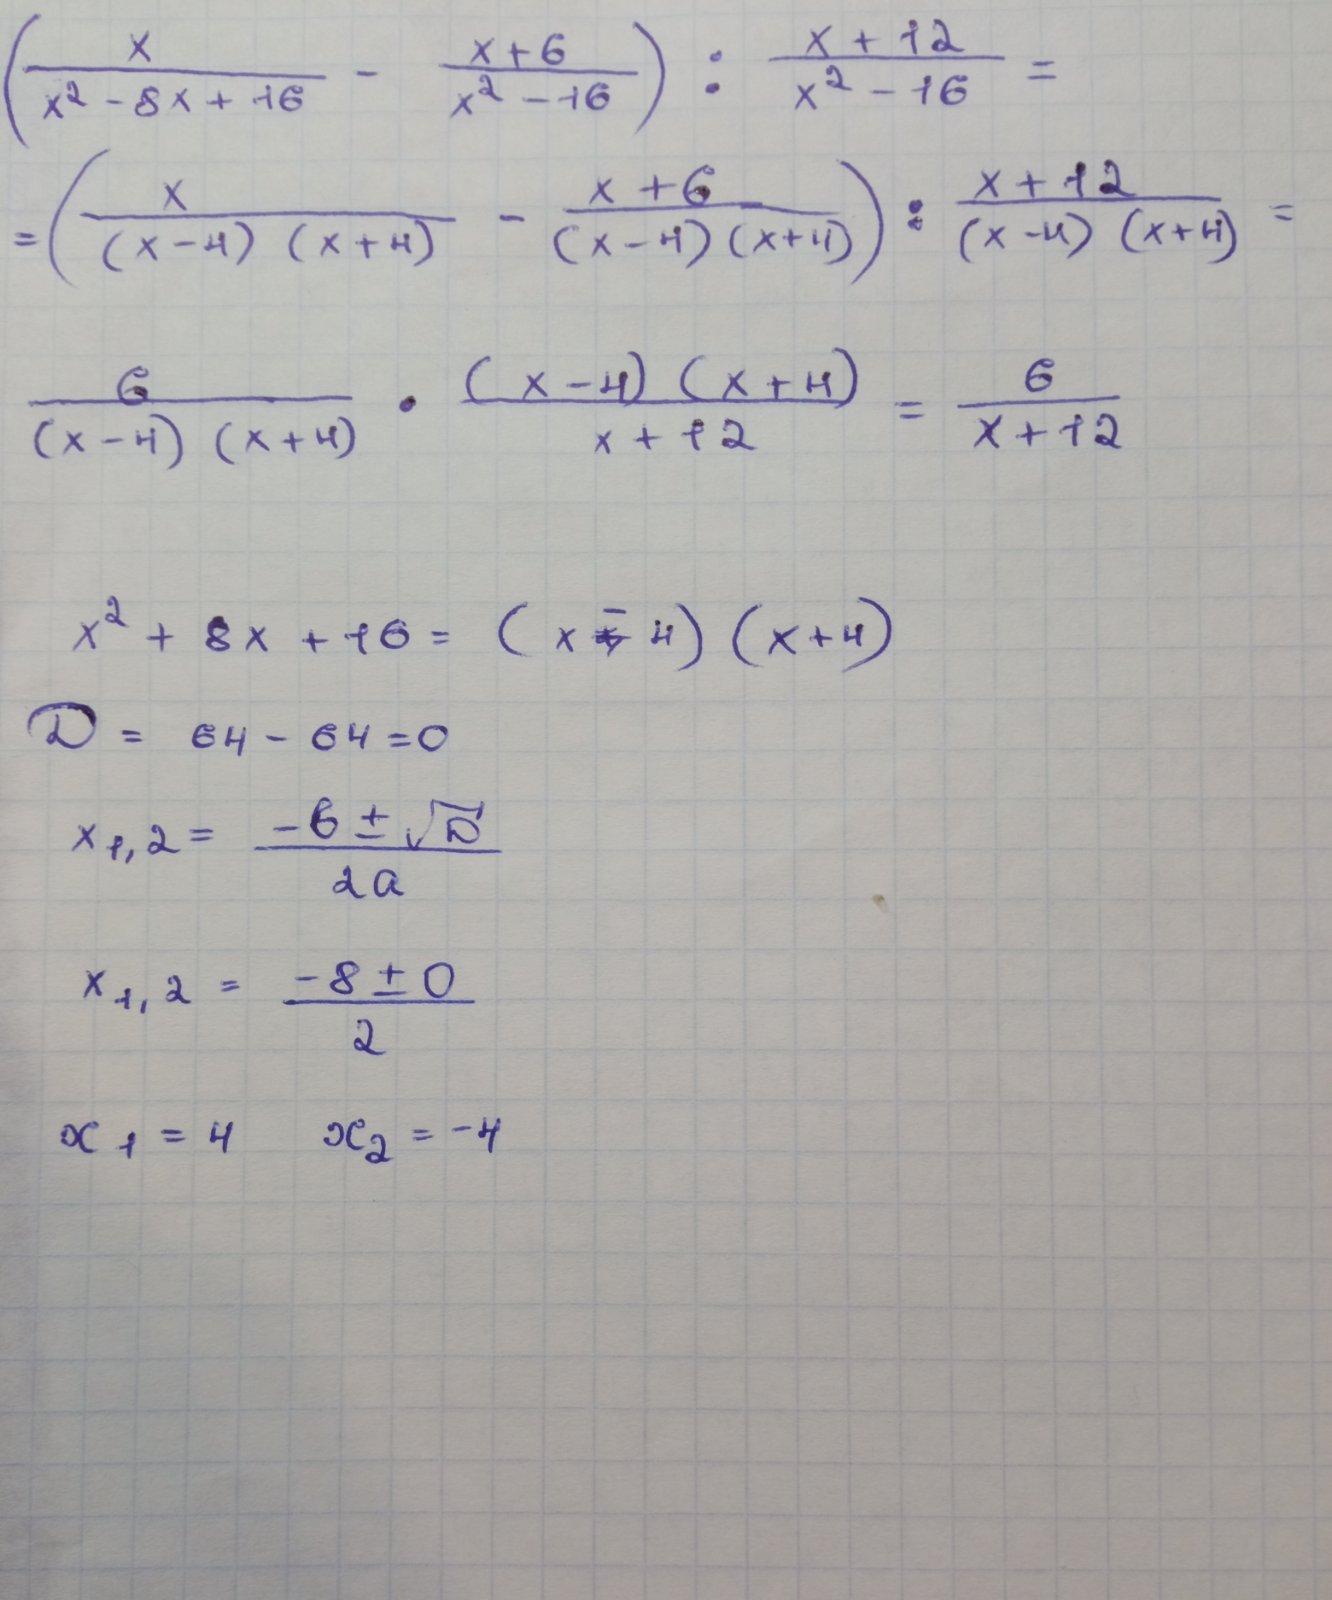 (x/(x² - 8x + 16) - (x+6)/(x² - 16)) : (x + 12)/(x² - 16) =
= (x/((x-4) (x+4)) - (x+6)/((x-4)(x+4))) : (x+12)/((x-4) (x+4)) =
6/((x-4) (x+4)) · ((x-4) (x+4))/(x+12) = 6/(x+12)
x² + 8x + 16 = (x - 4) (x+4)
D = 64 - 64 = 0
x₁,₂ = (-б ± √D)/(2a)
x₁,₂ = (-8 ± 0)/2
x₁ = 4 x₂ = -4